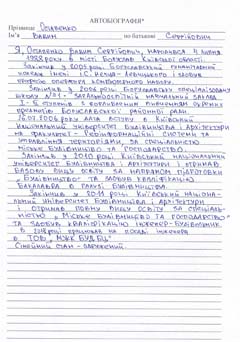 АВТОБІОГРАФІЯ*
Прізвище Осавенко
Ім'я Вадим по-батькові Сергійович
Я, Осавенко Вадим Сергійович, народився 4 липня
1988 року в місті Богуслав Київської області.
Закінчив у 2005 році Богуславський гуманітарний
коледж імені І.С. Нечуя-Левицького і здобув
професію оператора комп'ютерного набору.
Закінчив у 2006 році Богуславську спеціалізовану
школу №1 - загальноосвітній навчальний заклад
І-ІІІ ступенів з поглибленим вивченням окремих
предметів Богуславської районної ради.
2006 року вступив в Київський
Національний Університет Будівництва і Архітектури
на факультет - Геоінформаційні системи та
управління територіями, за спеціальністю
міське будівництво та господарство.
Закінчив у 2010 році Київський національний
університет Будівництва і Архітектури і отримав
базову вищу освіту за напрямом підготовки
"Будівництво" та здобув кваліфікацію
бакалавра в галузі будівництва.
Закінчив у 2011 році Київський націона-
льний університет Будівництва і Архітектури
і отримав повну вищу освіту за спеціаль-
ністю "Міське будівництво та господарство"
та здобув кваліфікацію інженер-будівельник
В році на посаді інженера
в ТОВ
Сімейний стан - одружений.